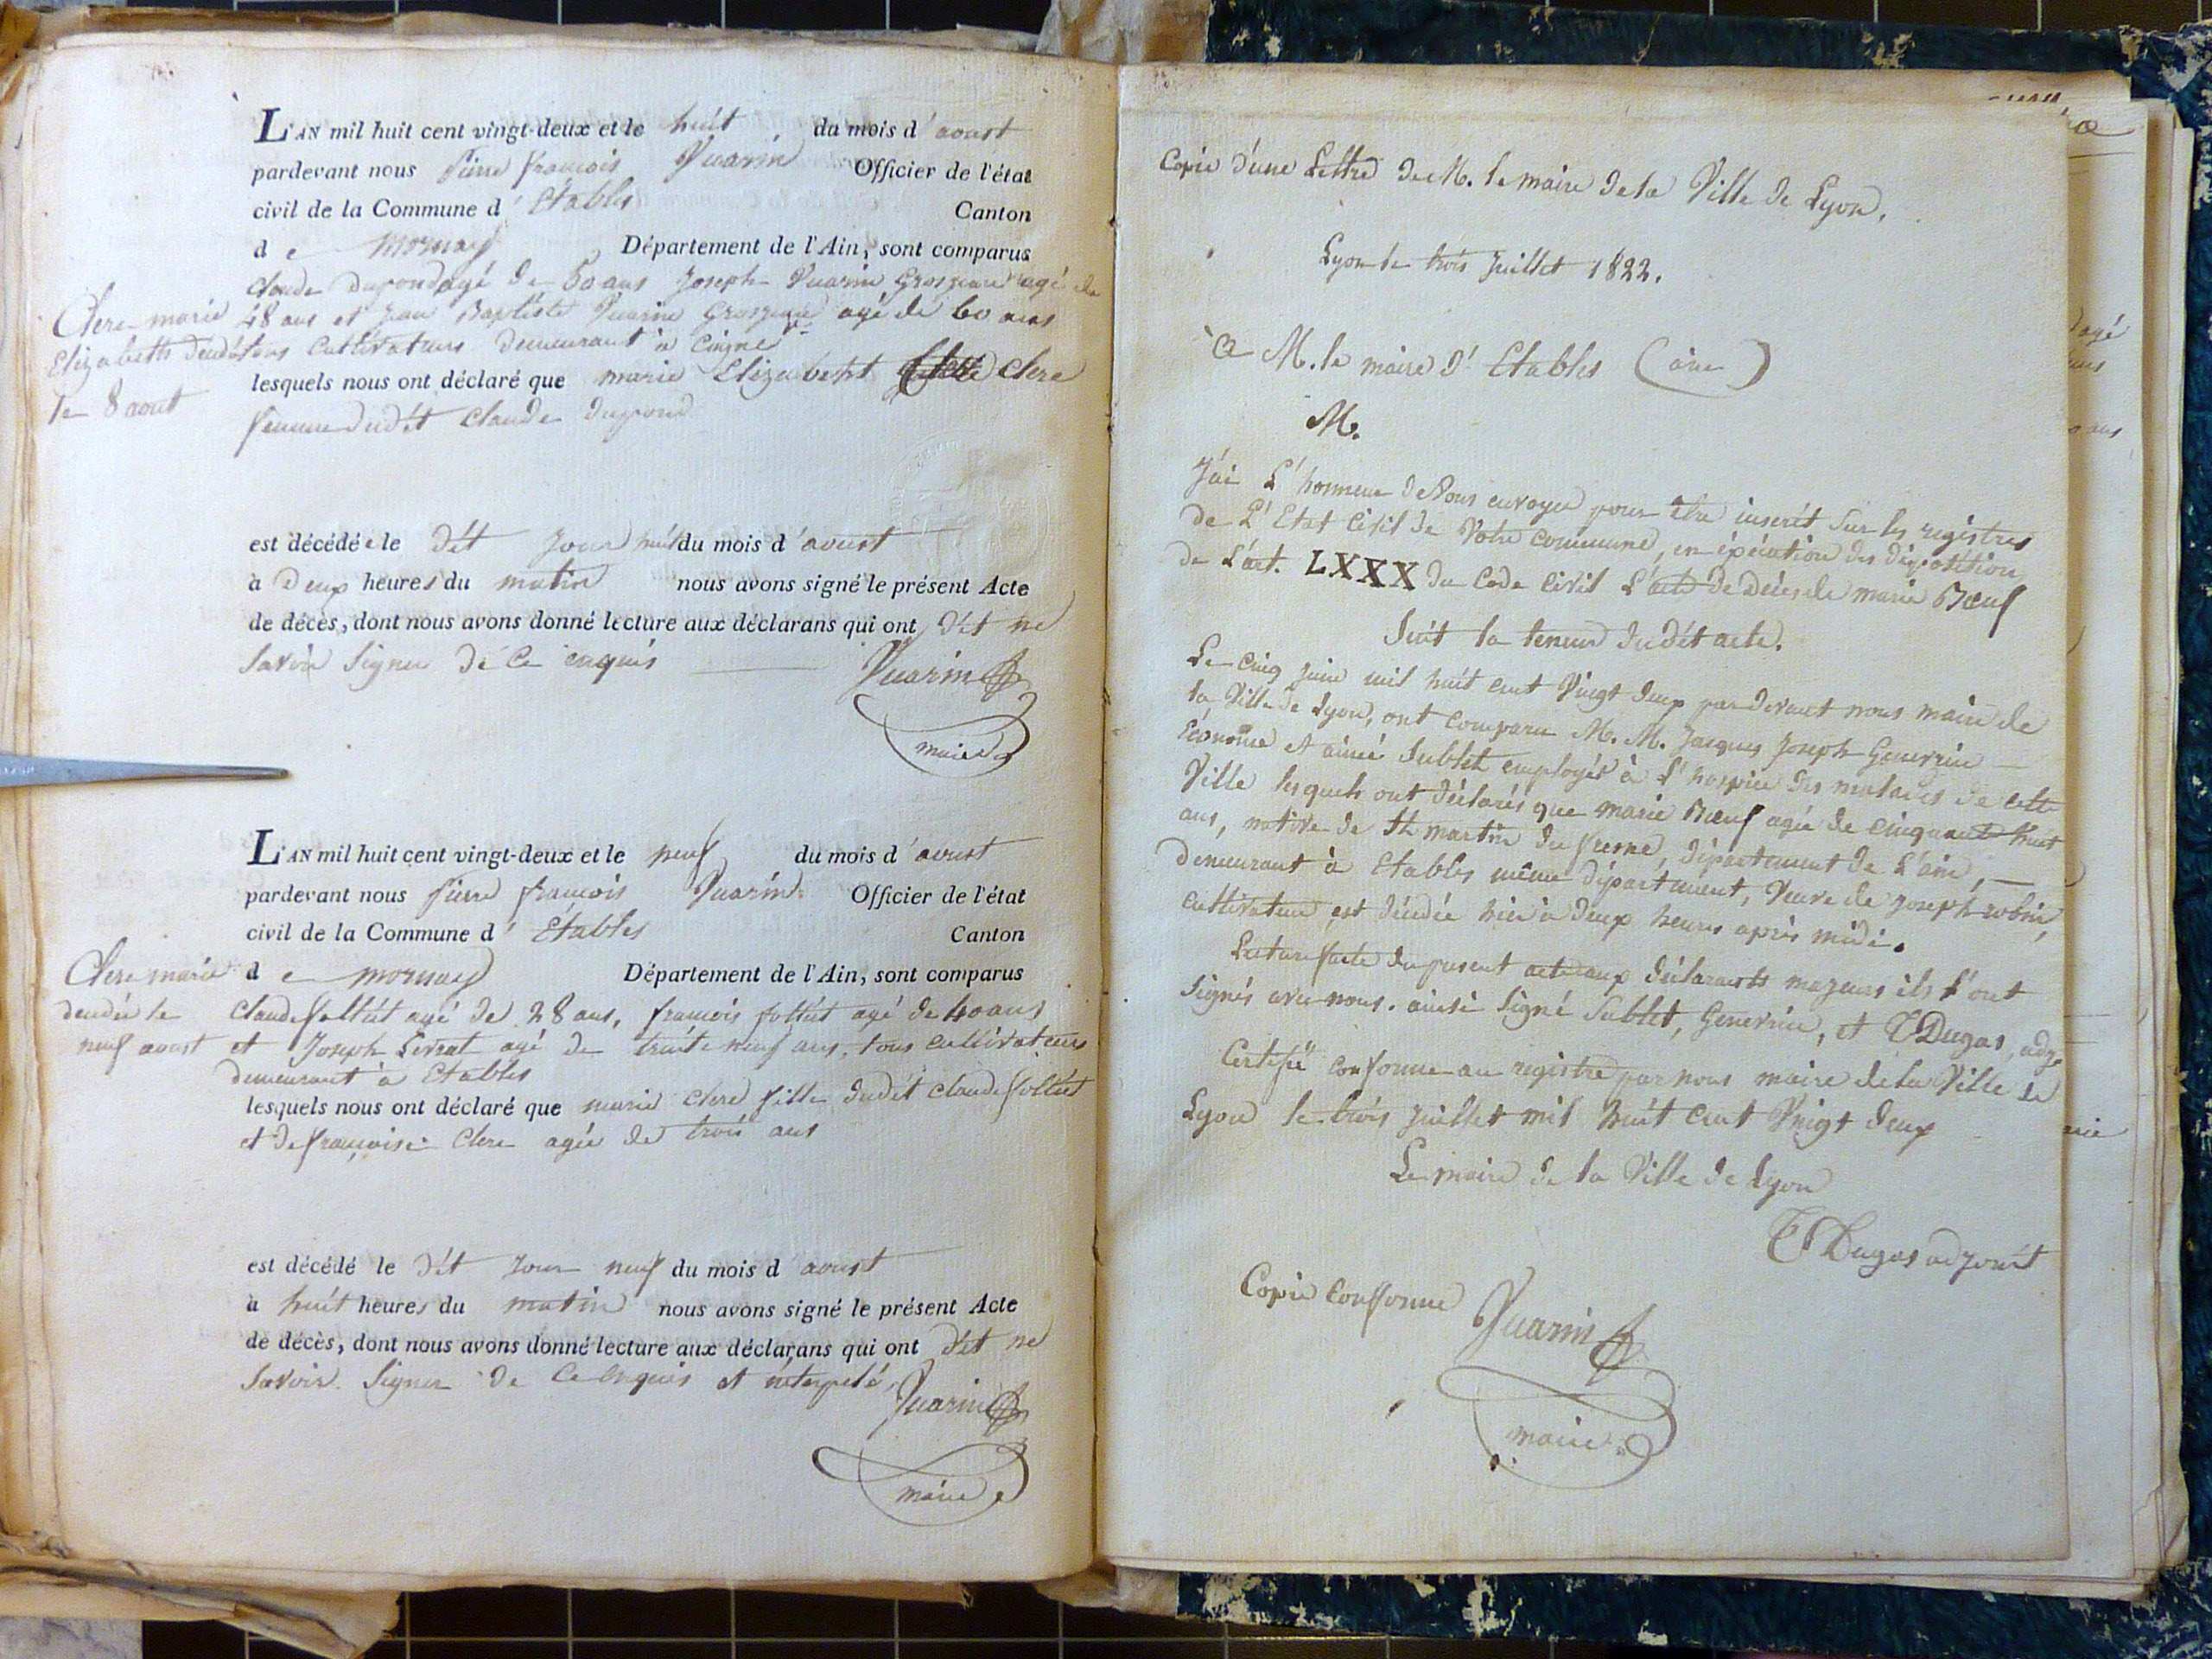 L'AN mil huit cent vingt-deux et le huit du mois d'aoust
pardevant nous Pierre françois Vuarin Officier de l'état
civil de la Commune d'Etables Canton
de mornay Département de l'Ain, sont comparus
claude Dupond agé de 50 ans Joseph Vuarin Grosjean agé de
48 ans et jean Baptiste Vuarin Grosjean agé de 60 ans
tous Cultivateurs demeurant à
Clere marie
Elizabeth
le 8 aout
lesquels nous ont déclaré que marie Elizabeth Clere
femme dudit claude dupond
est décédée le dit jour huit du mois d'aoust
à Deux heures du matin nous avons signé le présent Acte
de décès, dont nous avons donné lecture aux déclarans qui ont dit ne
Savoir Signer de Ce enquis
Vuarin
maire
L'AN mil huit cent vingt-deux et le neuf du mois d'aoust
pardevant nous Pierre françois Vuarin Officier de l'état
civil de la Commune d'Etables Canton
de mornay Département de l'Ain, sont comparus
Clere marie
décédée le
neuf aoust
Claude folliet agé de 28 ans, francois folliet agé de 40 ans
et Joseph Levrat agé de trente neuf ans, tous cultivateurs
demeurant à Etables
lesquels nous ont déclaré que marie clere fille dudit claude folliet
et de françoise Clere agée de trois ans
est décédé le dit jour neuf du mois d'aoust
à huit heures du matin nous avons signé le présent Acte
de décès, dont nous avons donné lecture aux déclarans qui ont dit ne
Savoir Signer de Ce enquis et interpelé
Vuarin
maire
Copie d'une Lettre de M. le maire de la Ville de Lyon.
Lyon le trois juillet 1822.
à M. le maire d'Etables (ain)
M.
J'ai L'honneur de Vous envoyer pour être inserét Sur les registres
de L'Etat Civil de Votre Commune, en éxécution des dispotition
de L'art. LXXX du Code Civil L'acte de Décès de marie Bœuf
Suit la teneur dudit acte.
Le Cinq juin mil huit cent Vingt deux par devant nous maire de
la Ville de Lyon, ont Comparu M. M. Jacques Joseph Genevrine
Econome et aimé Sublet employés à L'hospice des malades de Cette
Ville lesquels ont déclarés que marie Bœuf agée de Cinquante huit
ans, native de St martin du fresne, département de L'ain,
Demeurant à Etables même département, Veuve de Joseph robin,
cultivateur, est décédée hier à deux heures après midi.
Lecture faite du present acte aux déclarants majeurs ils L'ont
Signés avec nous. ainsi Signé Sublet, Genevrine, et T Dugas, adj.
Certifié Conforme au registre par nous maire de la Ville de
Lyon le trois juillet mil huit Cent Vingt deux
Le maire de la Ville de Lyon
T Dugas adjoint
Copie Conforme Vuarin
maire